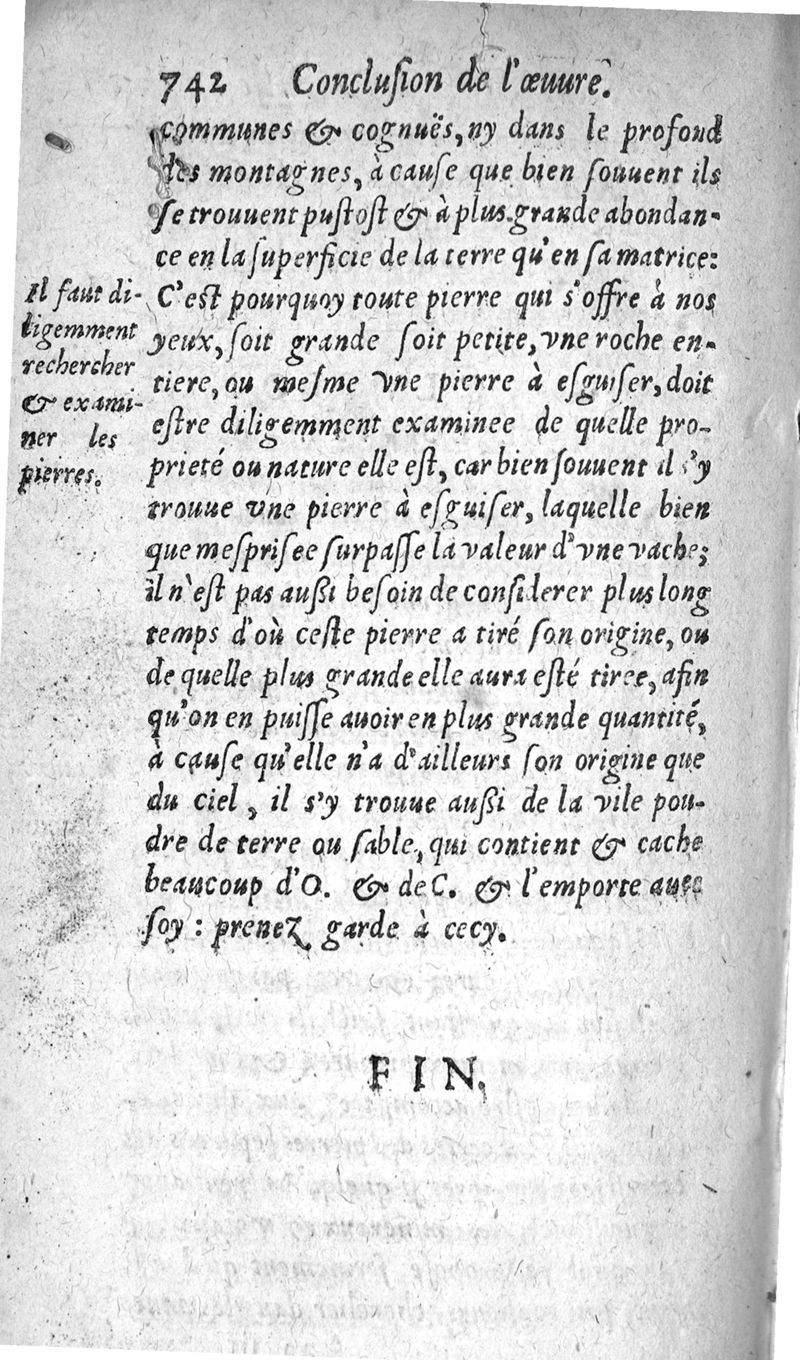 742 Concluſion de l'œuure.
communes & cognuës, ny dans le profond
des montagnes, à cauſe que bien ſouuent ils
ſe trouuent puſtoſt & à plus grande abondan-
ce en la ſuperficie de la terre qu'en ſa matrice:
C'eſt pourquoy toute pierre qui s'offre à nos
yeux, ſoit grande ſoit petite, vne roche en-
tiere, ou meſme vne pierre à eſguiſer, doit
eſtre diligemment examinee de quelle pro-
prieté ou nature elle eſt, car bien ſouuent il s'y
trouue vne pierre à eſguiſer, laquelle bien
que meſpriſee ſurpaſſe la valeur d'vne vache;
il n'eſt pas außi beſoin de conſiderer plus long
temps d'où ceſte pierre a tiré ſon origine, ou
de quelle plus grande elle aura eſté tiree, afin
qu'on en puiſſe auoir en plus grande quantité,
à cauſe qu'elle n'a d'ailleurs ſon origine que
du ciel, il s'y trouue außi de la vile pou-
dre de terre ou ſable, qui contient & cache
beaucoup d'O. & de C. & l'emporte auec
ſoy : prenez garde à cecy.
Il faut di-
ligemment
rechercher
& exami-
ner les
pierres.
FIN.